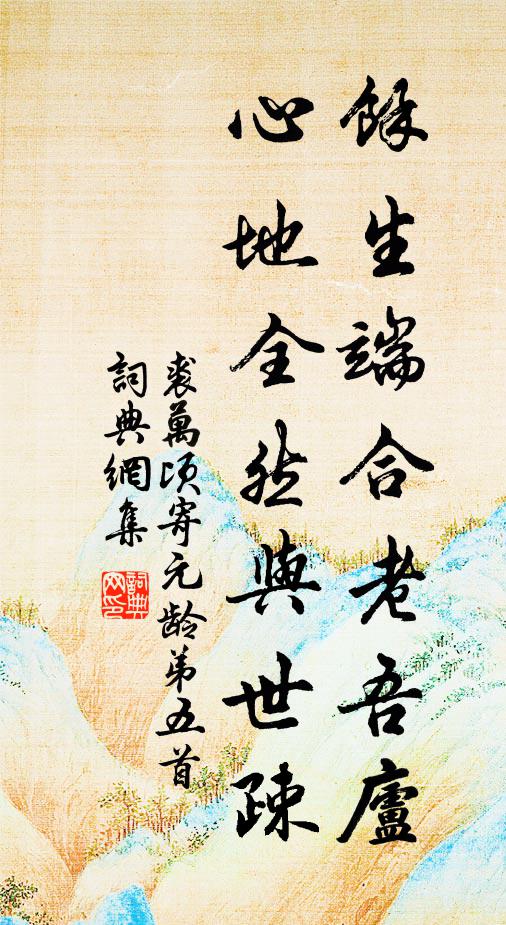 餘生端合老吾廬
心地全然與世疎
裘萬頃寄元齡第五首
詞典網集
詞典網印